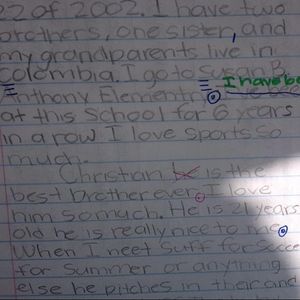 22 of 2002. I have two
brothers, one sister, and
my grandparents live in
Colombia. I go to Susan B.
I have be
Anthony Elementry
at this School for 6 years
in a row I love sports so
much.
Christian is the
best brother ever. I love
him so much. He is 21 years
old he is really nice to me.
When I neet Suff for Soccer
for Summer or anything
else he pitches in their and